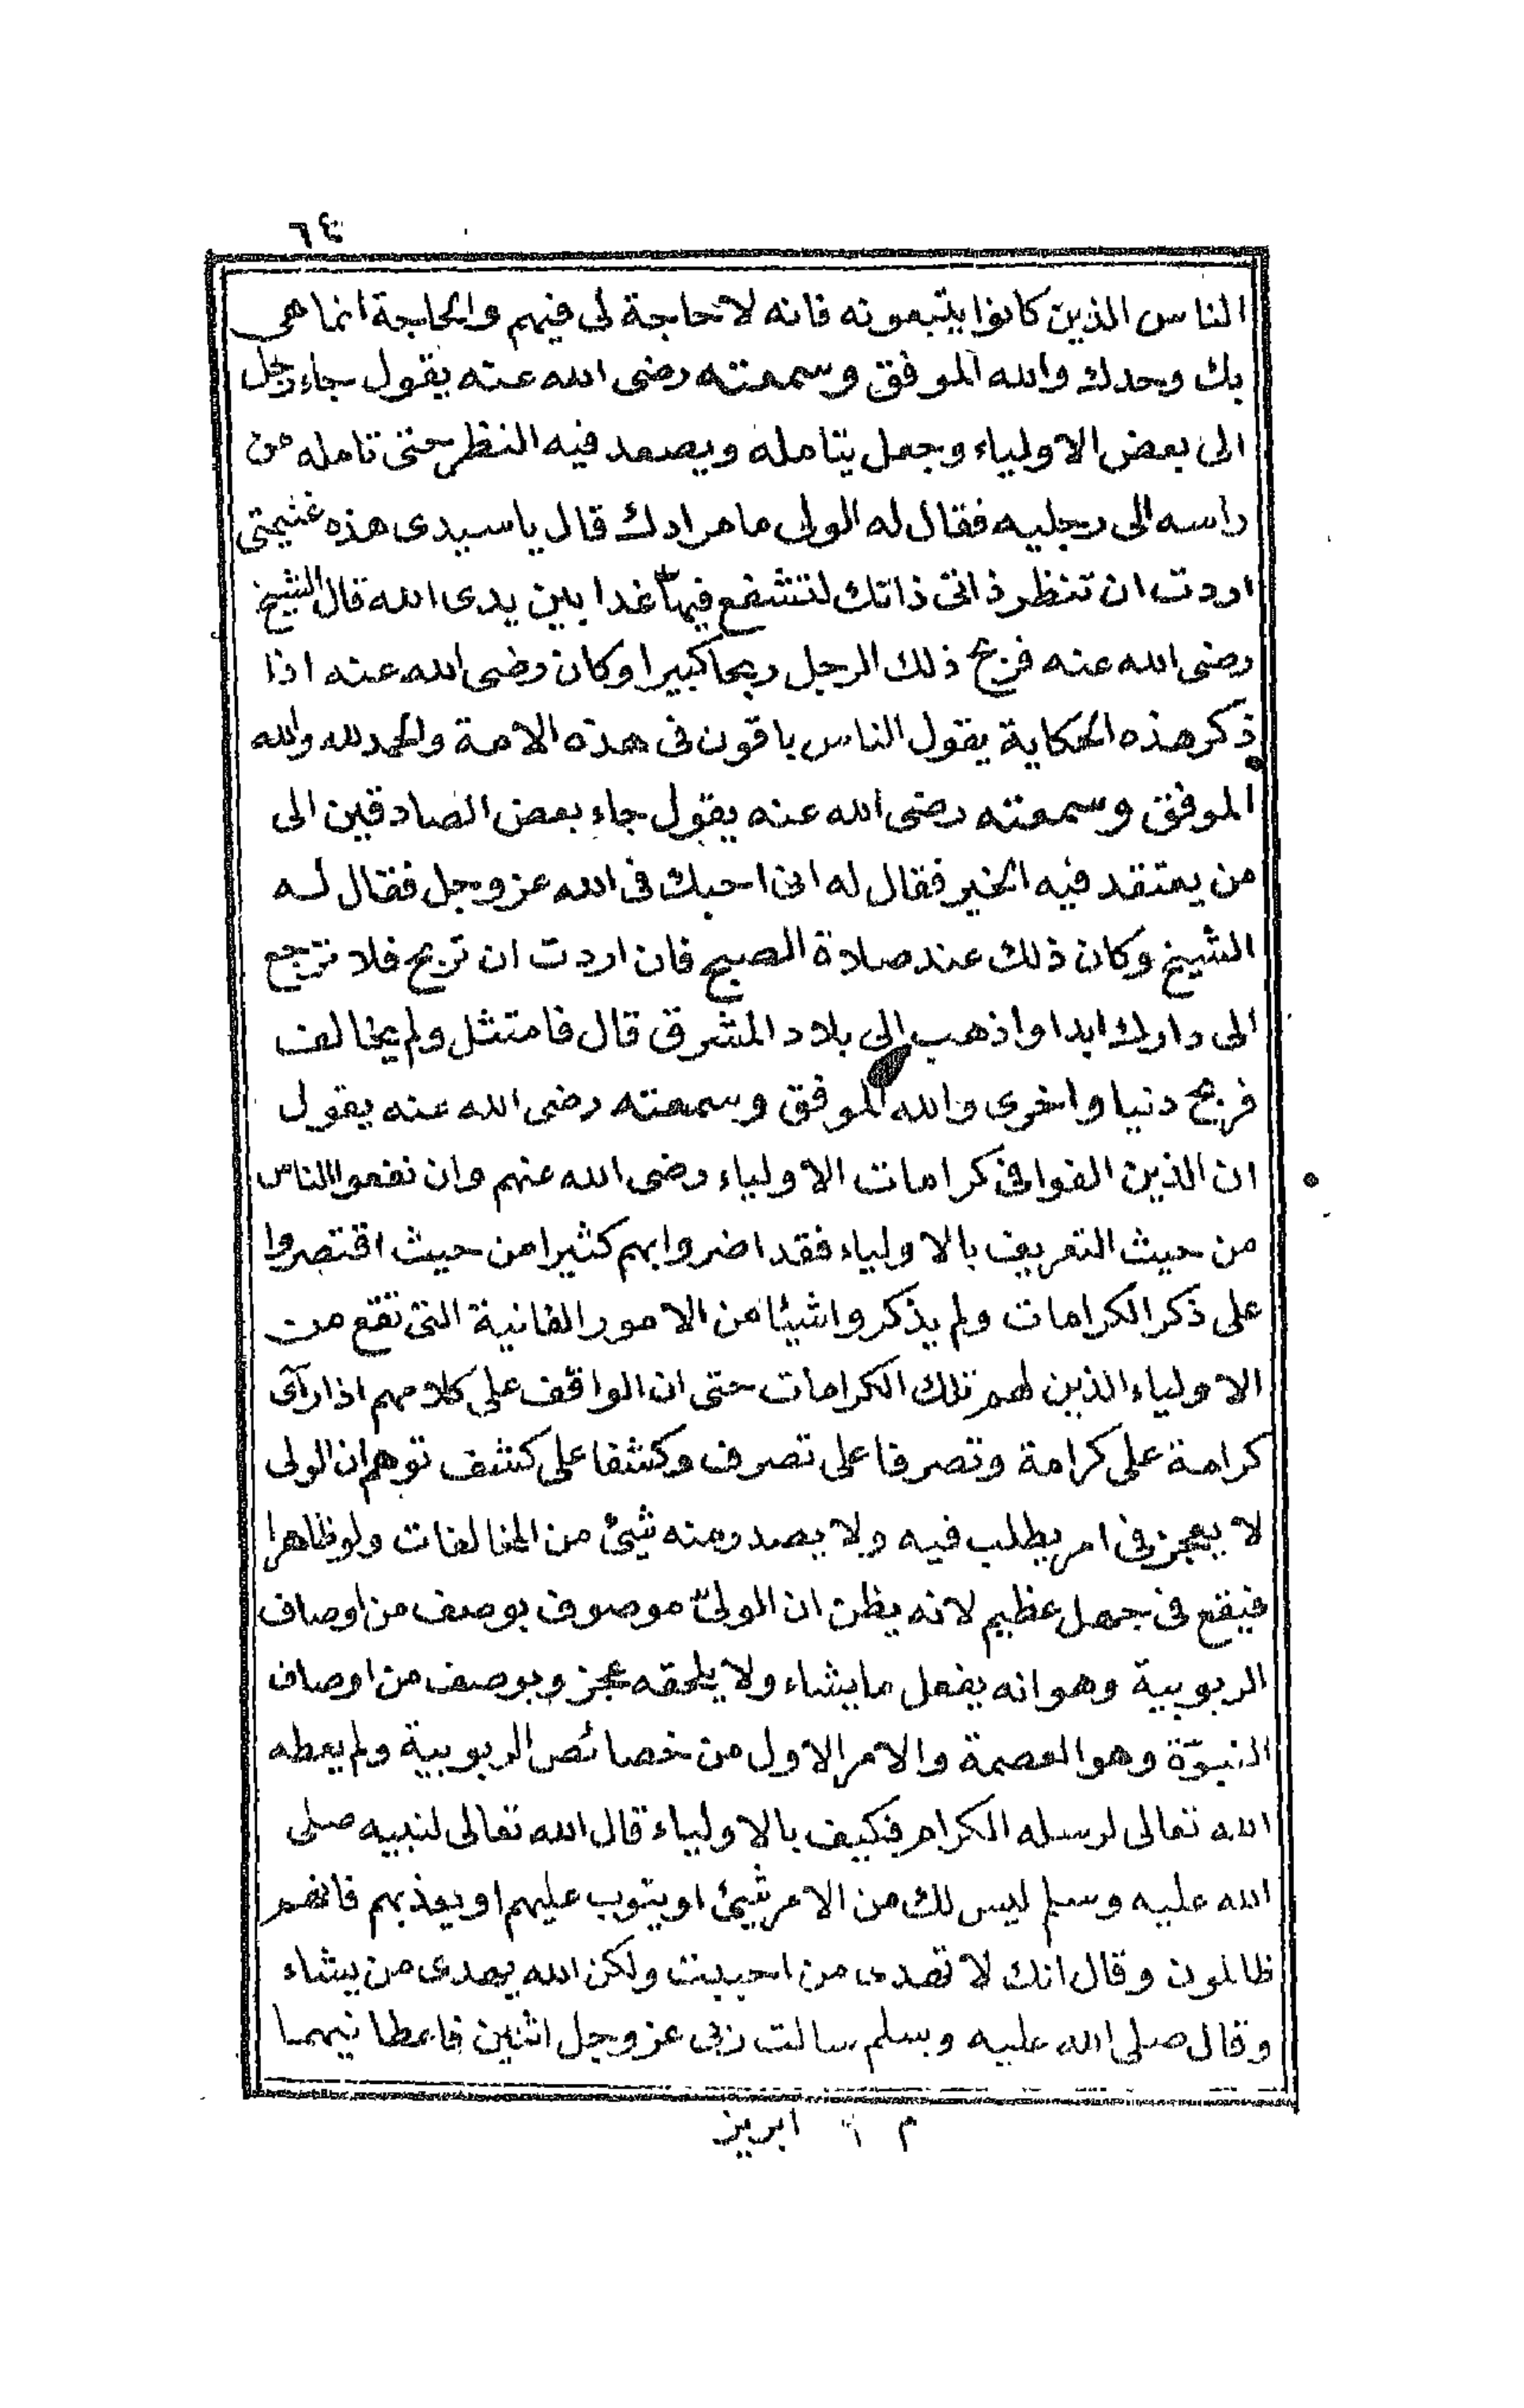 ٦٤
الناس الذين كانوا يتبعونه فانه لا حاجة لى فيهم والحاجة انما هى
بك وحدك والله الموفق وسمعته رضى الله عنه يقول جاء رجل
الى بعض الاولياء وجعل يتامله ويصعد فيه النظر حتى تامله من
راسه الى رجليه فقال له الولى ما مرادك قال يا سيدى هذه غنيمتى
اردت ان تنظر ذاتى ذاتك لتشفع فيها غدا بين يدى الله قال الشيخ
رضى الله عنه فربح ذلك الرجل ربحا كبيرا وكان رضى الله عنه اذا
ذكر هذه الحكاية يقول الناس باقون فى هذه الامة والحمد لله والله
الموفق وسمعته رضى الله عنه يقول جاء بعض الصادقين الى
من يعتقد فيه الخير فقال له انى احبك فى الله عز وجل فقال له
الشيخ وكان ذلك عند صلاة الصبح فان اردت ان تربح فلا ترجع
الى دارك ابدا واذهب الى بلاد المشرق قال فامتثل ولم يخالف
فربح دنيا واخرى والله الموفق وسمعته رضى الله عنه يقول
ان الذين الفوا فى كرامات الاولياء رضى الله عنهم وان نفعوا الناس
من حيث التعريف بالاولياء فقد اضروا بهم كثيرا من حيث اقتصروا
على ذكر الكرامات ولم يذكروا شيئا من الامور الفانية التى تقع من
الاولياء الذين لهم تلك الكرامات حتى ان الواقف على كلامهم اذا رآى
كرامة على كرامة وتصرفا على تصرف وكشفا على كشف توهم ان الولى
لا يعجز فى امر يطلب فيه ولا يصدر منه شيئ من المخالفات ولو ظاهرا
فيقع فى جهل عظيم لانه يظن ان الولىّ موصوف بوصف من اوصاف
الربوبية وهو انه يفعل ما يشاء ولا يلحقه عجز وبوصف من اوصاف
النبوّة وهو العصمة والامر الاول من خصائص الربوبية ولم يعطه
الله تعالى لرسله الكرام فكيف بالاولياء قال الله تعالى لنبيه صلى
الله عليه وسلم ليس لك من الامر شيئ او يتوب عليهم او يعذبهم فانهم
ظالمون وقال انك لا تهدى من احببت ولكن الله يهدى من يشاء
وقال صلى الله عليه وسلم سالت ربى عز وجل اثنين فاعطانيهما
م ابريز